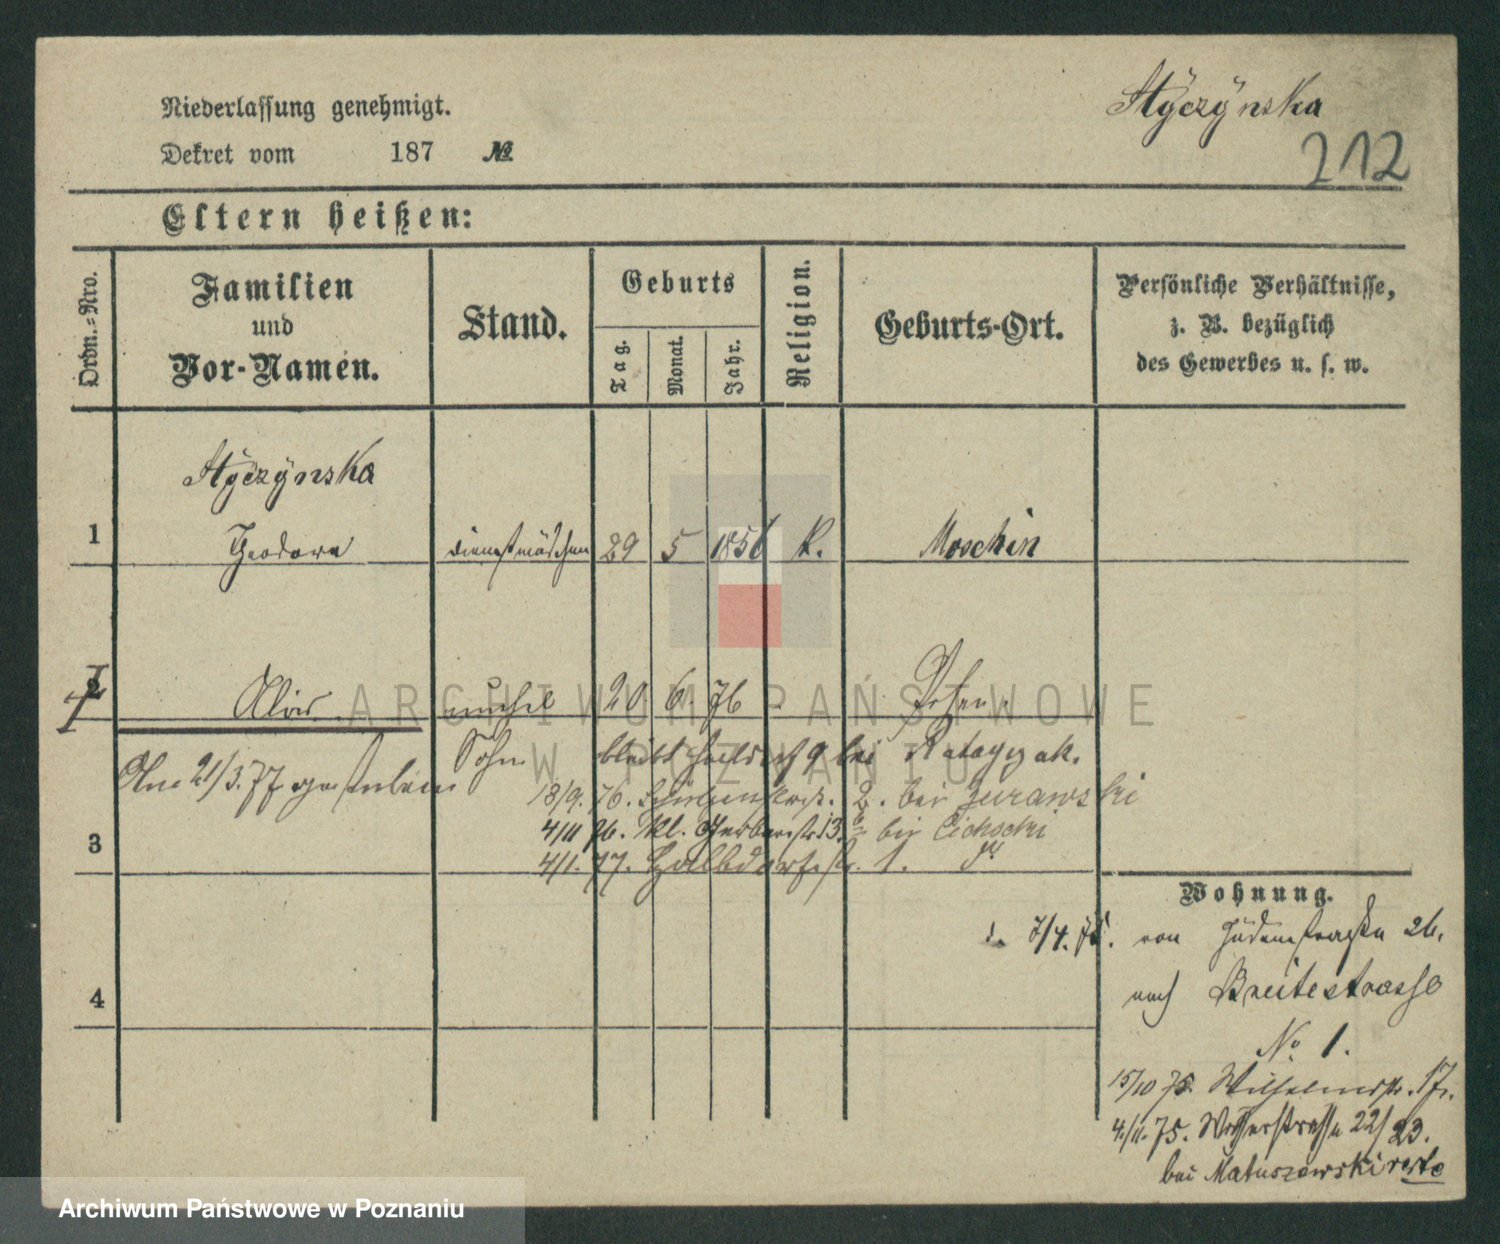 Niederlassung genehmigt.
Styczynska
Dekret vom 187 №
212
Eltern heißen:
Ordn.-Nro.
Familien
und
Vor-Namen.
Stand.
Geburts
Tag.
Monat.
Jahr.
Religion.
Geburts-Ort.
Persönliche Verhältnisse,
z. B. bezüglich
des Gewerbes u. s. w.
Styczynska
1 Theodora Dienstmädchen 29 5 1856 K. Moschin
2 Alois unehel 20 6. 76 Posen.
Sohn bleibt Halbdorf 9 bei Ratayczak.
Am 21/3. 77 gestorben
18/9. 76. Schützenstr. 2. bei Zurawski
4/11 76. Kl. Gerberstr. 13. bei Cichocki
3
4/1. 77. Halbdorfstr. 1.
Wohnung.
7/4. 75. von Judenstraße 26.
nach Breitestrasse
4
No 1.
15/10 75. Wilhelmstr. 17.
4/11. 75. Wasserstrasse 22/23.
bei Matuszewski
ARCHIWUM PAŃSTWOWE
W POZNANIU
Archiwum Państwowe w Poznaniu